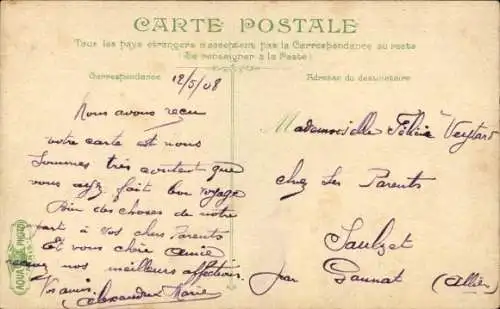 CARTE POSTALE
Tous les pays étrangers n'acceptent pas la Correspondance au recto
(Se renseigner à la Poste)
Correspondance
12/5/08
Nous avons reçu
votre carte et nous
sommes très content que
vous ayz fait bon voyage
Bien des choses de notre
part à vos chers Parents
Et vous chère amie
recevez nos meilleurs affections
Vos amis.
Alexandrine Marie
AQUA PHOTO
PARIS
Adresse du destinataire
Mademoiselle Félicie
chez Ses Parents
Saulzet
par Gannat (Allier)